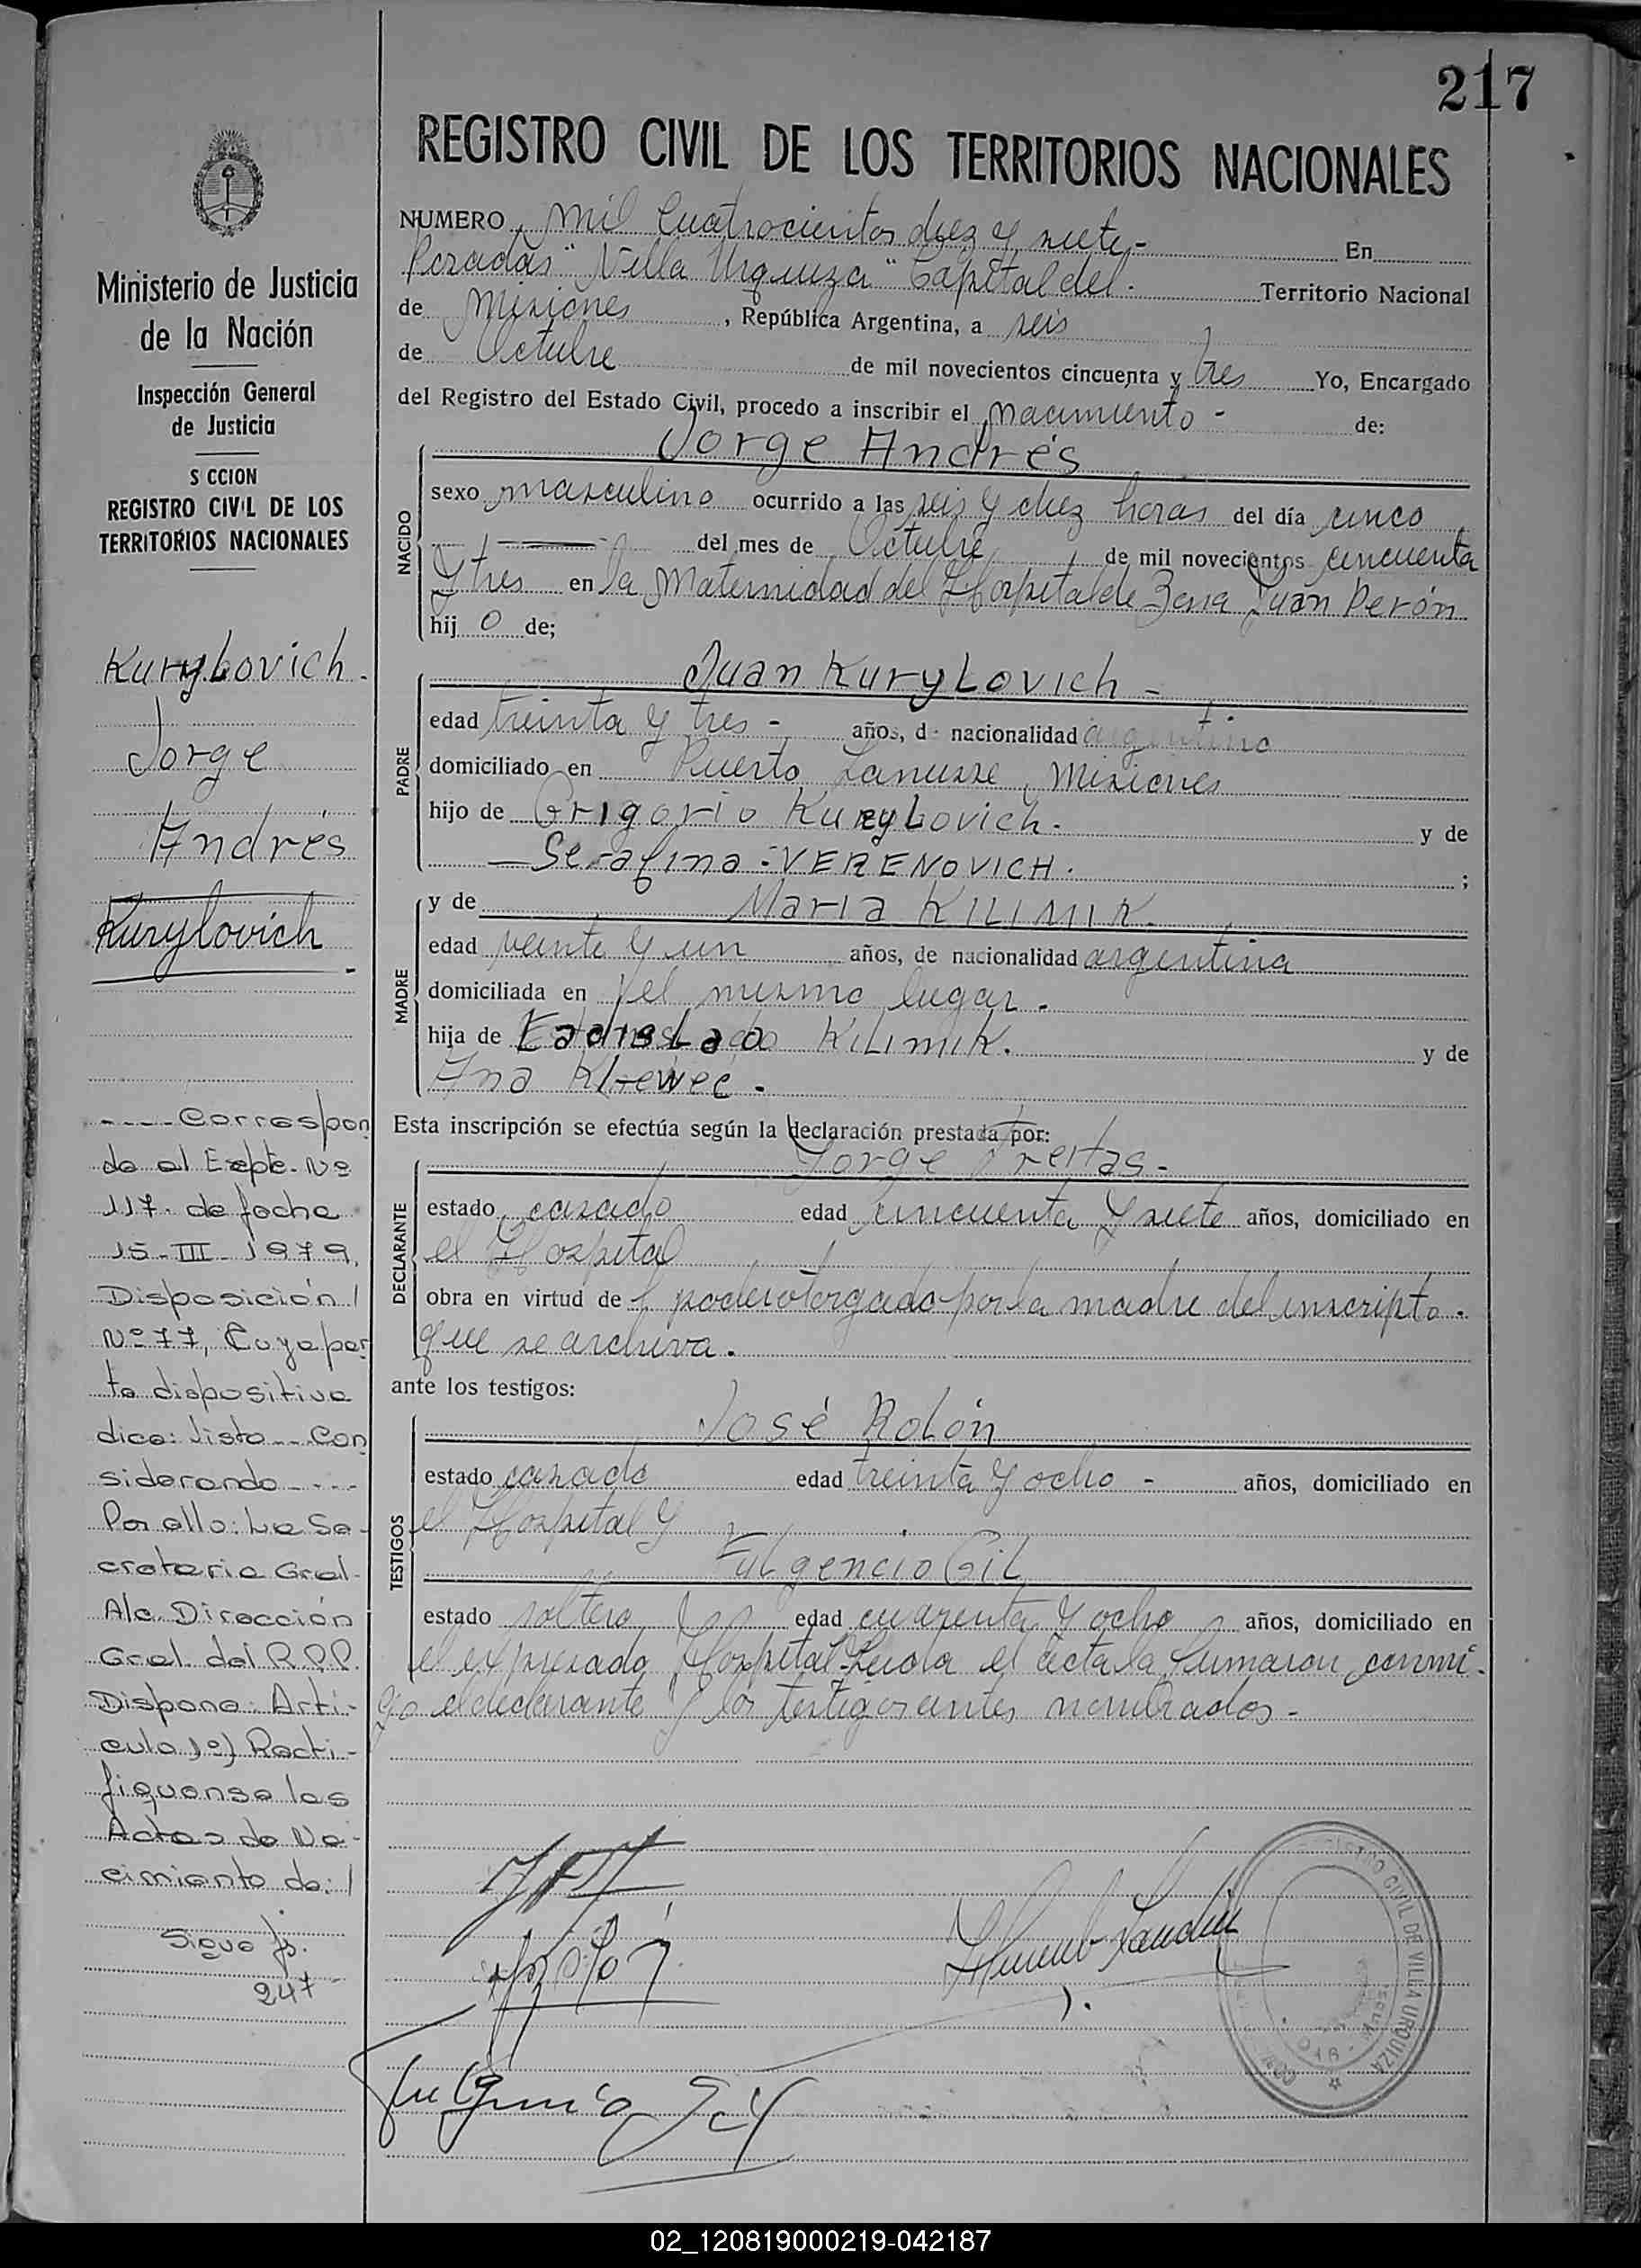 217
REGISTRO CIVIL DE LOS TERRITORIOS NACIONALES
NUMERO mil cuatrocientos diez y siete - En
Posadas "Villa Urquiza" Capital del. Territorio Nacional
de Misiones, República Argentina, a seis
de Octubre de mil novecientos cincuenta y tres Yo, Encargado
del Registro del Estado Civil, procedo a inscribir el nacimiento - de:
Jorge Andrés
NACIDO
sexo masculino ocurrido a las seis y diez horas del día cinco
del mes de Octubre de mil novecientos cincuenta
y tres en la Maternidad del Hospital de Zona Juan Perón
hij o de;
PADRE
Juan Kurylovich -
edad treinta y tres - años, d nacionalidad argentino
domiciliado en Puerto Lanusse, Misiones
hijo de Grigorio Kurylovich. y de
Serafina VERENOVICH. ;
MADRE
y de Maria KILIMIK.
edad veinte y un años, de nacionalidad argentina
domiciliada en el mismo lugar.
hija de Kilimik. y de
Ana
Esta inscripción se efectúa según la declaración prestada por:
DECLARANTE
Jorge Freitas -
estado casado edad cincuenta y siete años, domiciliado en
el Hospital
obra en virtud de poder otorgado por la madre del inscripto.
que se archiva.
ante los testigos:
TESTIGOS
José Rolón
estado casado edad treinta y ocho - años, domiciliado en
el Hospital y
Fulgencio Gil
estado soltero edad cuarenta y ocho años, domiciliado en
el expresado Hospital. Leída el acta la firmaron conmi-
go el declarante y los testigos antes nombrados -
Fulgencio Gil
REGISTRO CIVIL DE VILLA URQUIZA
Ministerio de Justicia
de la Nación
Inspección General
de Justicia
S CCION
REGISTRO CIVIL DE LOS
TERRITORIOS NACIONALES
Kurylovich.
Jorge
Andrés
Kurylovich
-
---- Correspon
de al Expte. Nº
117. de fecha
15-III-1979.
Disposición/
Nº 77, Cuya par
te dispositiva
dice: Visto -- Con
siderando ----
Por ello: La Se-
cretaria Gral-
A/c. Dirección
Gral. del R.P.P.
Dispone: Artí-
culo 1º) Recti-
fíquense las
Actas de Na-
cimiento de: /
Sigue fs.
247
02_120819000219-042187